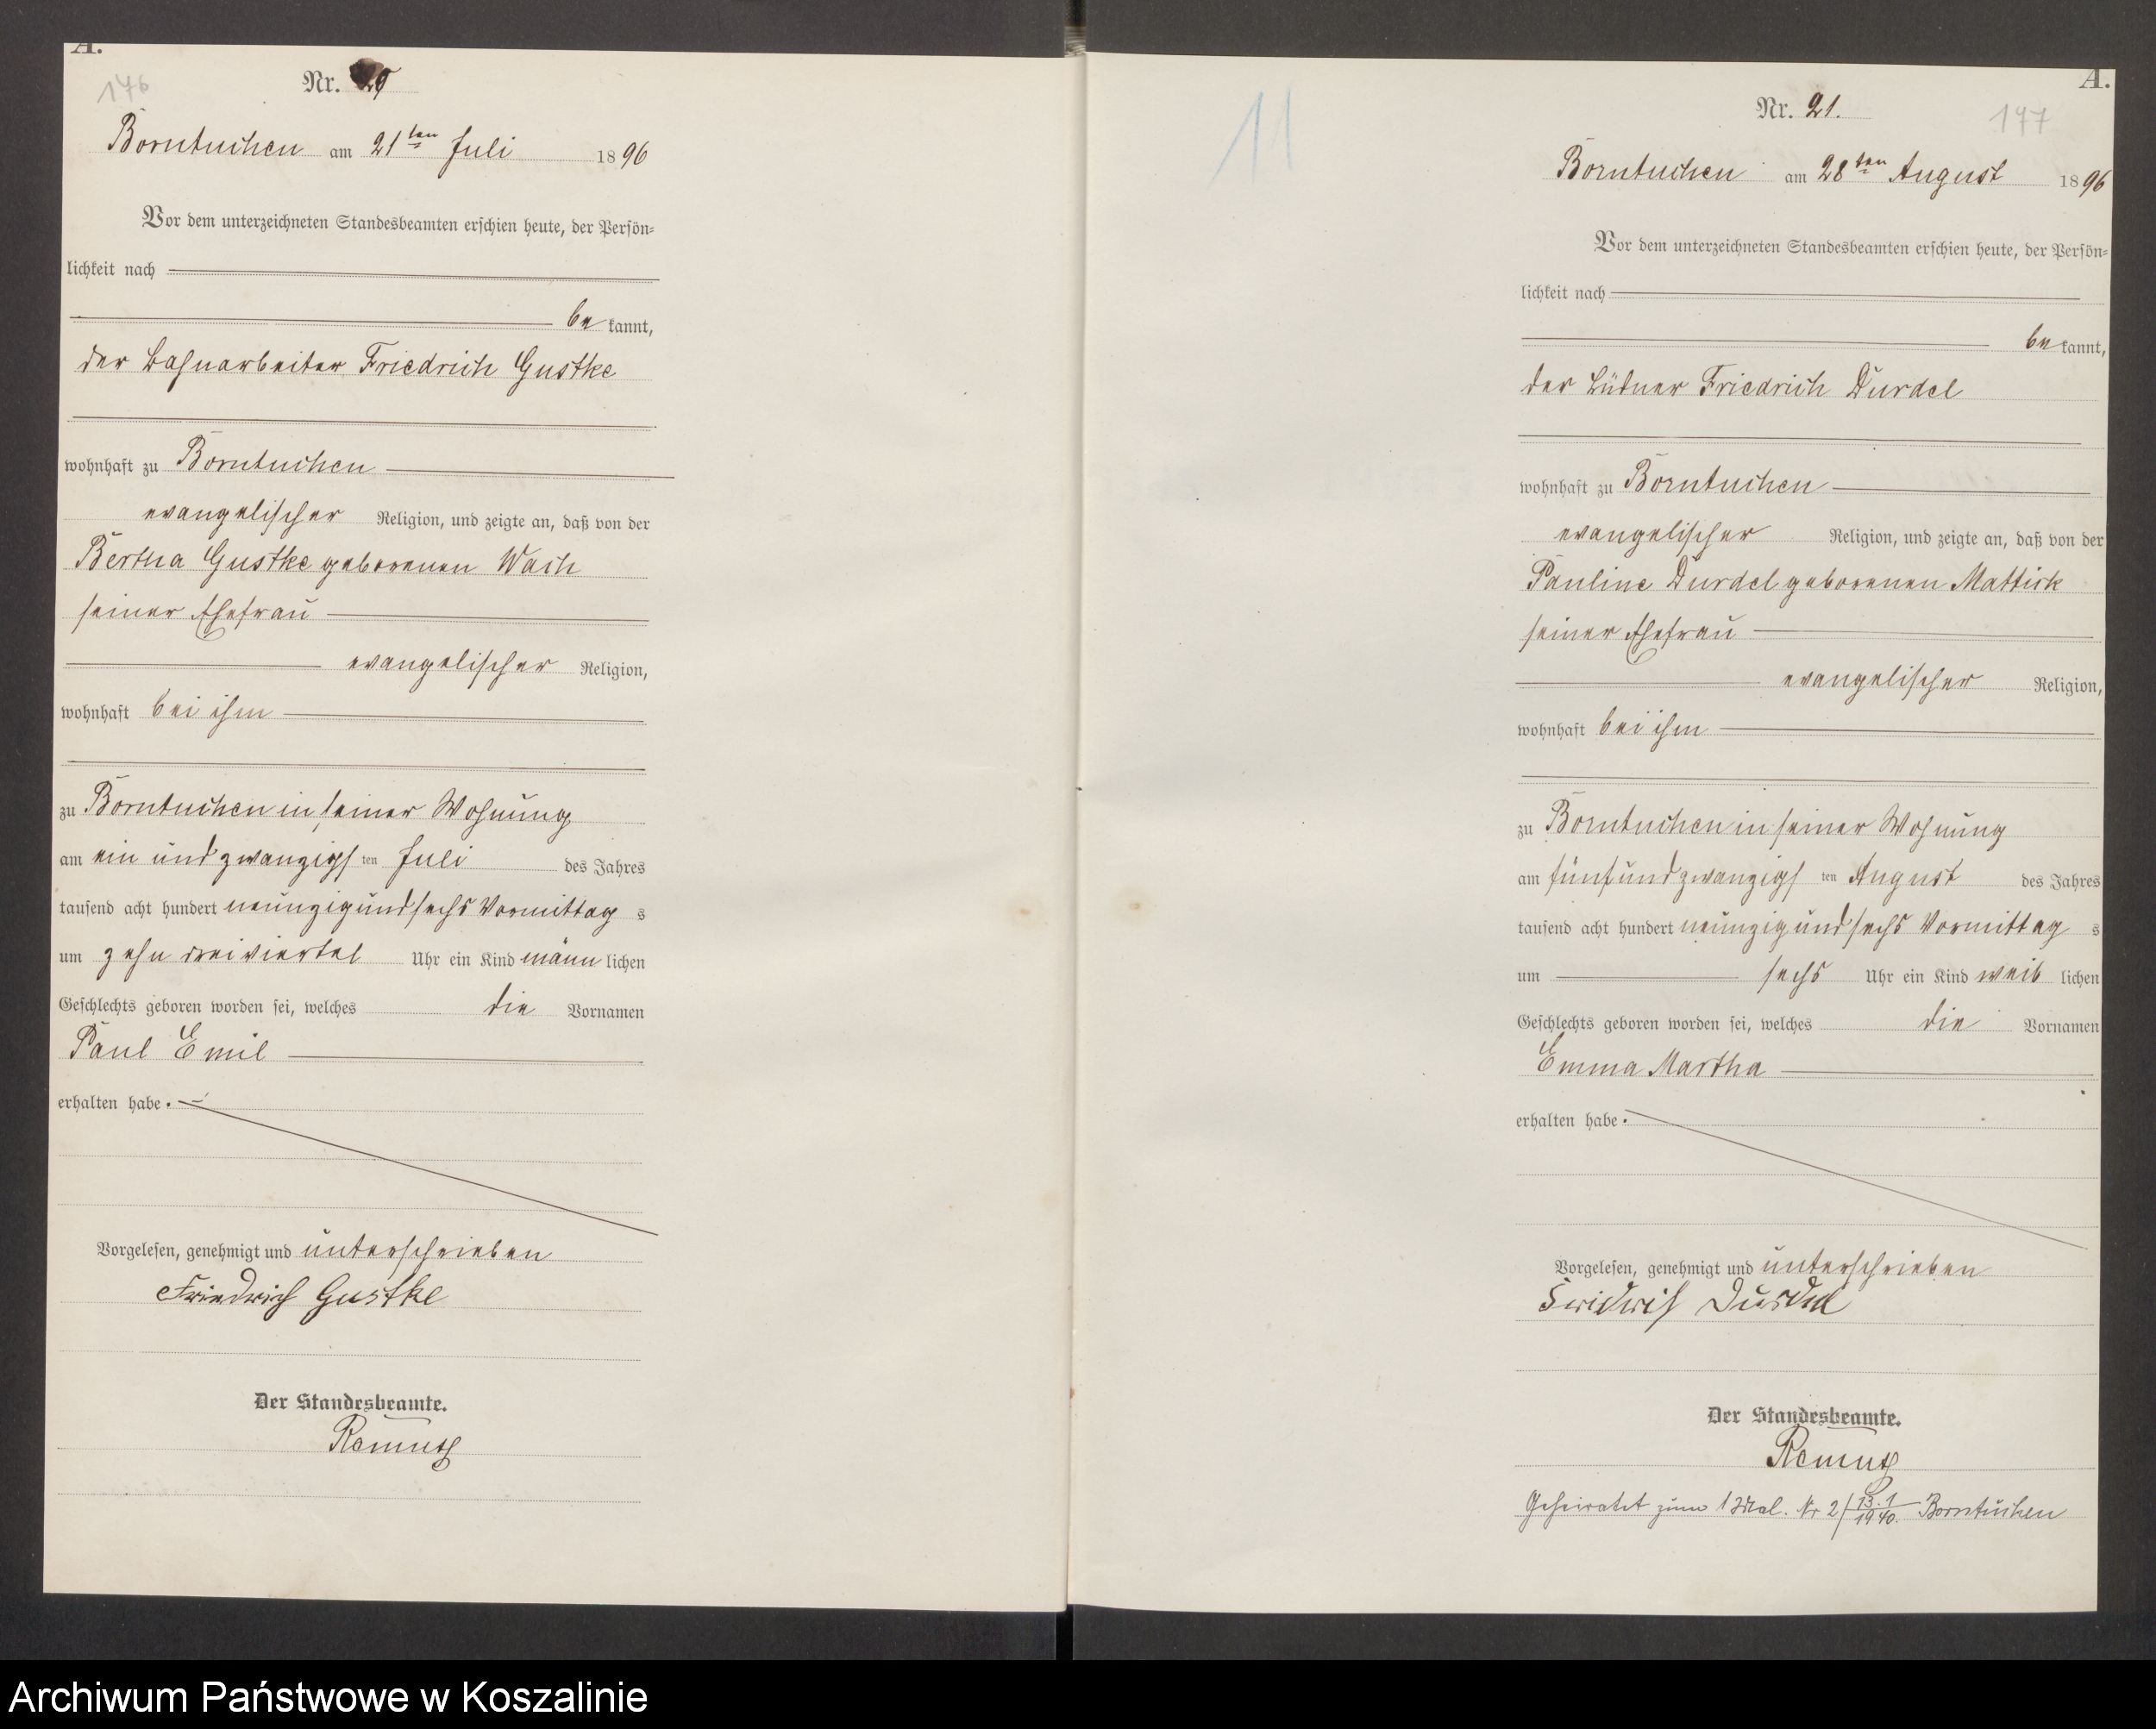 A.
176
Nr.
Borntuchen am 21ten Juli 1896
Vor dem unterzeichneten Standesbeamten erschien heute, der Persön-
lichkeit nach
bekannt,
der Bahnarbeiter Friedrich Gustke
wohnhaft zu Borntuchen
evangelischer Religion, und zeigte an, daß von der
Bertha Gustke geborenen Wach
seiner Ehefrau
evangelischer Religion,
wohnhaft bei ihm
zu Borntuchen in seiner Wohnung
am ein und zwanzigsten Juli des Jahres
tausend acht hundert neunzig und sechs Vormittags
um zehn dreiviertel Uhr ein Kind männlichen
Geschlechts geboren worden sei, welches die Vornamen
Paul Emil
erhalten habe.
Vorgelesen, genehmigt und unterschrieben
Friedrich Gustke
Der Standesbeamte.
Remus
11
A.
177
Nr. 21.
Borntuchen am 28ten August 1896
Vor dem unterzeichneten Standesbeamten erschien heute, der Persön-
lichkeit nach
bekannt,
der Büdner Friedrich Durdel
wohnhaft zu Borntuchen
evangelischer Religion, und zeigte an, daß von der
Pauline Durdel geborenen Mattick
seiner Ehefrau
evangelischer Religion,
wohnhaft bei ihm
zu Borntuchen in seiner Wohnung
am fünfundzwanzigsten August des Jahres
tausend acht hundert neunzig und sechs Vormittags
um sechs Uhr ein Kind weiblichen
Geschlechts geboren worden sei, welches die Vornamen
Emma Martha
erhalten habe.
Vorgelesen, genehmigt und unterschrieben
Fridrich Durdel
Der Standesbeamte.
Remus
Geheiratet zum 1 Mal. Nr 2/13.1 1940. Borntuchen
Archiwum Państwowe w Koszalinie